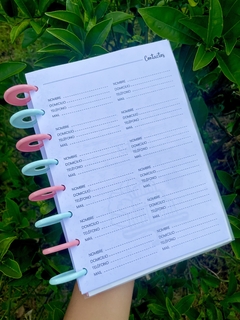 Contactos
NOMBRE NOMBRE
DOMICILIO DOMICILIO
TELÉFONO TELÉFONO
MAIL MAIL
NOMBRE NOMBRE
DOMICILIO DOMICILIO
TELÉFONO TELÉFONO
MAIL MAIL
NOMBRE NOMBRE
DOMICILIO DOMICILIO
TELÉFONO TELÉFONO
MAIL MAIL
NOMBRE NOMBRE
DOMICILIO DOMICILIO
TELÉFONO TELÉFONO
MAIL MAIL
NOMBRE NOMBRE
DOMICILIO DOMICILIO
TELÉFONO TELÉFONO
MAIL MAIL
NOMBRE NOMBRE
DOMICILIO DOMICILIO
TELÉFONO TELÉFONO
MAIL MAIL